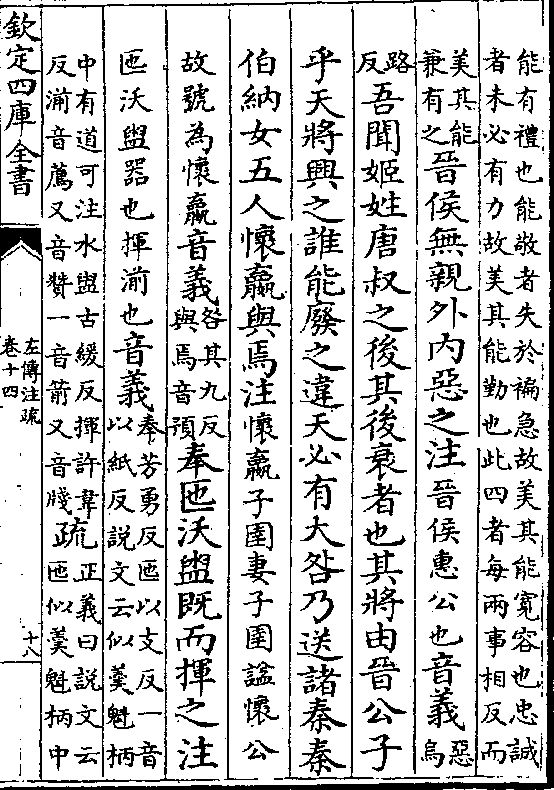 能有禮也能敬者失於褊急故美其能寬容也忠誠
者未必有力故美其能勤也此四者每兩事相反而
美其能
兼有之
晉侯無親外内惡之注晉侯惠公也音義
惡
烏
路
反
吾聞姬姓唐叔之後其後衰者也其將由晉公子
乎天將興之誰能廢之違天必有大咎乃送諸秦秦
伯納女五人懷嬴與焉注懷嬴子圉妻子圉諡懷公
故號為懷嬴音義
咎其九反
與焉音預
奉匜沃盥既而揮之注
匜沃盥器也揮湔也音義
奉芳勇反匜以支反一音
以紙反說文云似羹魁柄
中有道可注水盥古緩反揮許韋
反湔音薦又音贊一音箭又音牋
疏
正義曰說文云
匜似羹魁柄中
欽定四庫全書
左傳注疏
卷十四
十八